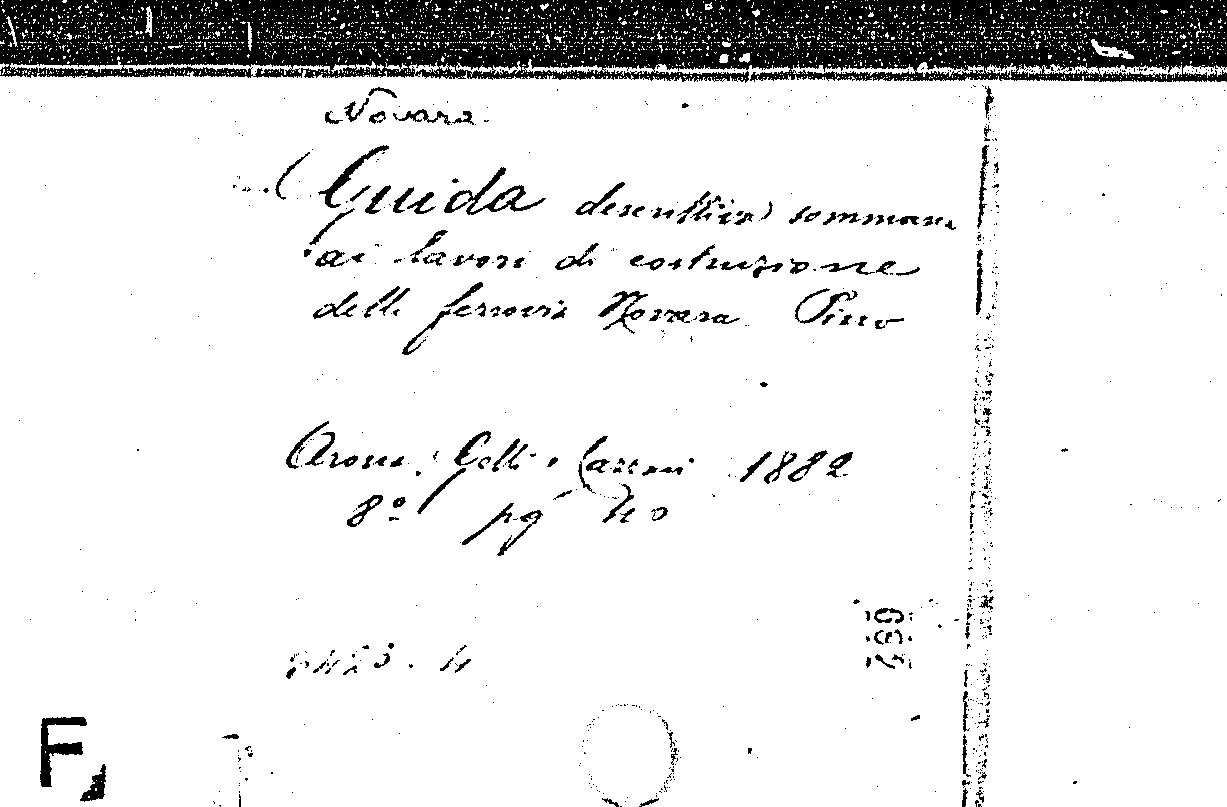 Novara
Guida descrittiva sommaria
ai lavori di costruzione
della ferrovia Novara Pino
Arona, Cazzani 1882
8º pg 40
F